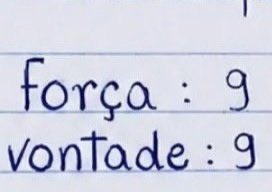 força : 9
vontade : 9